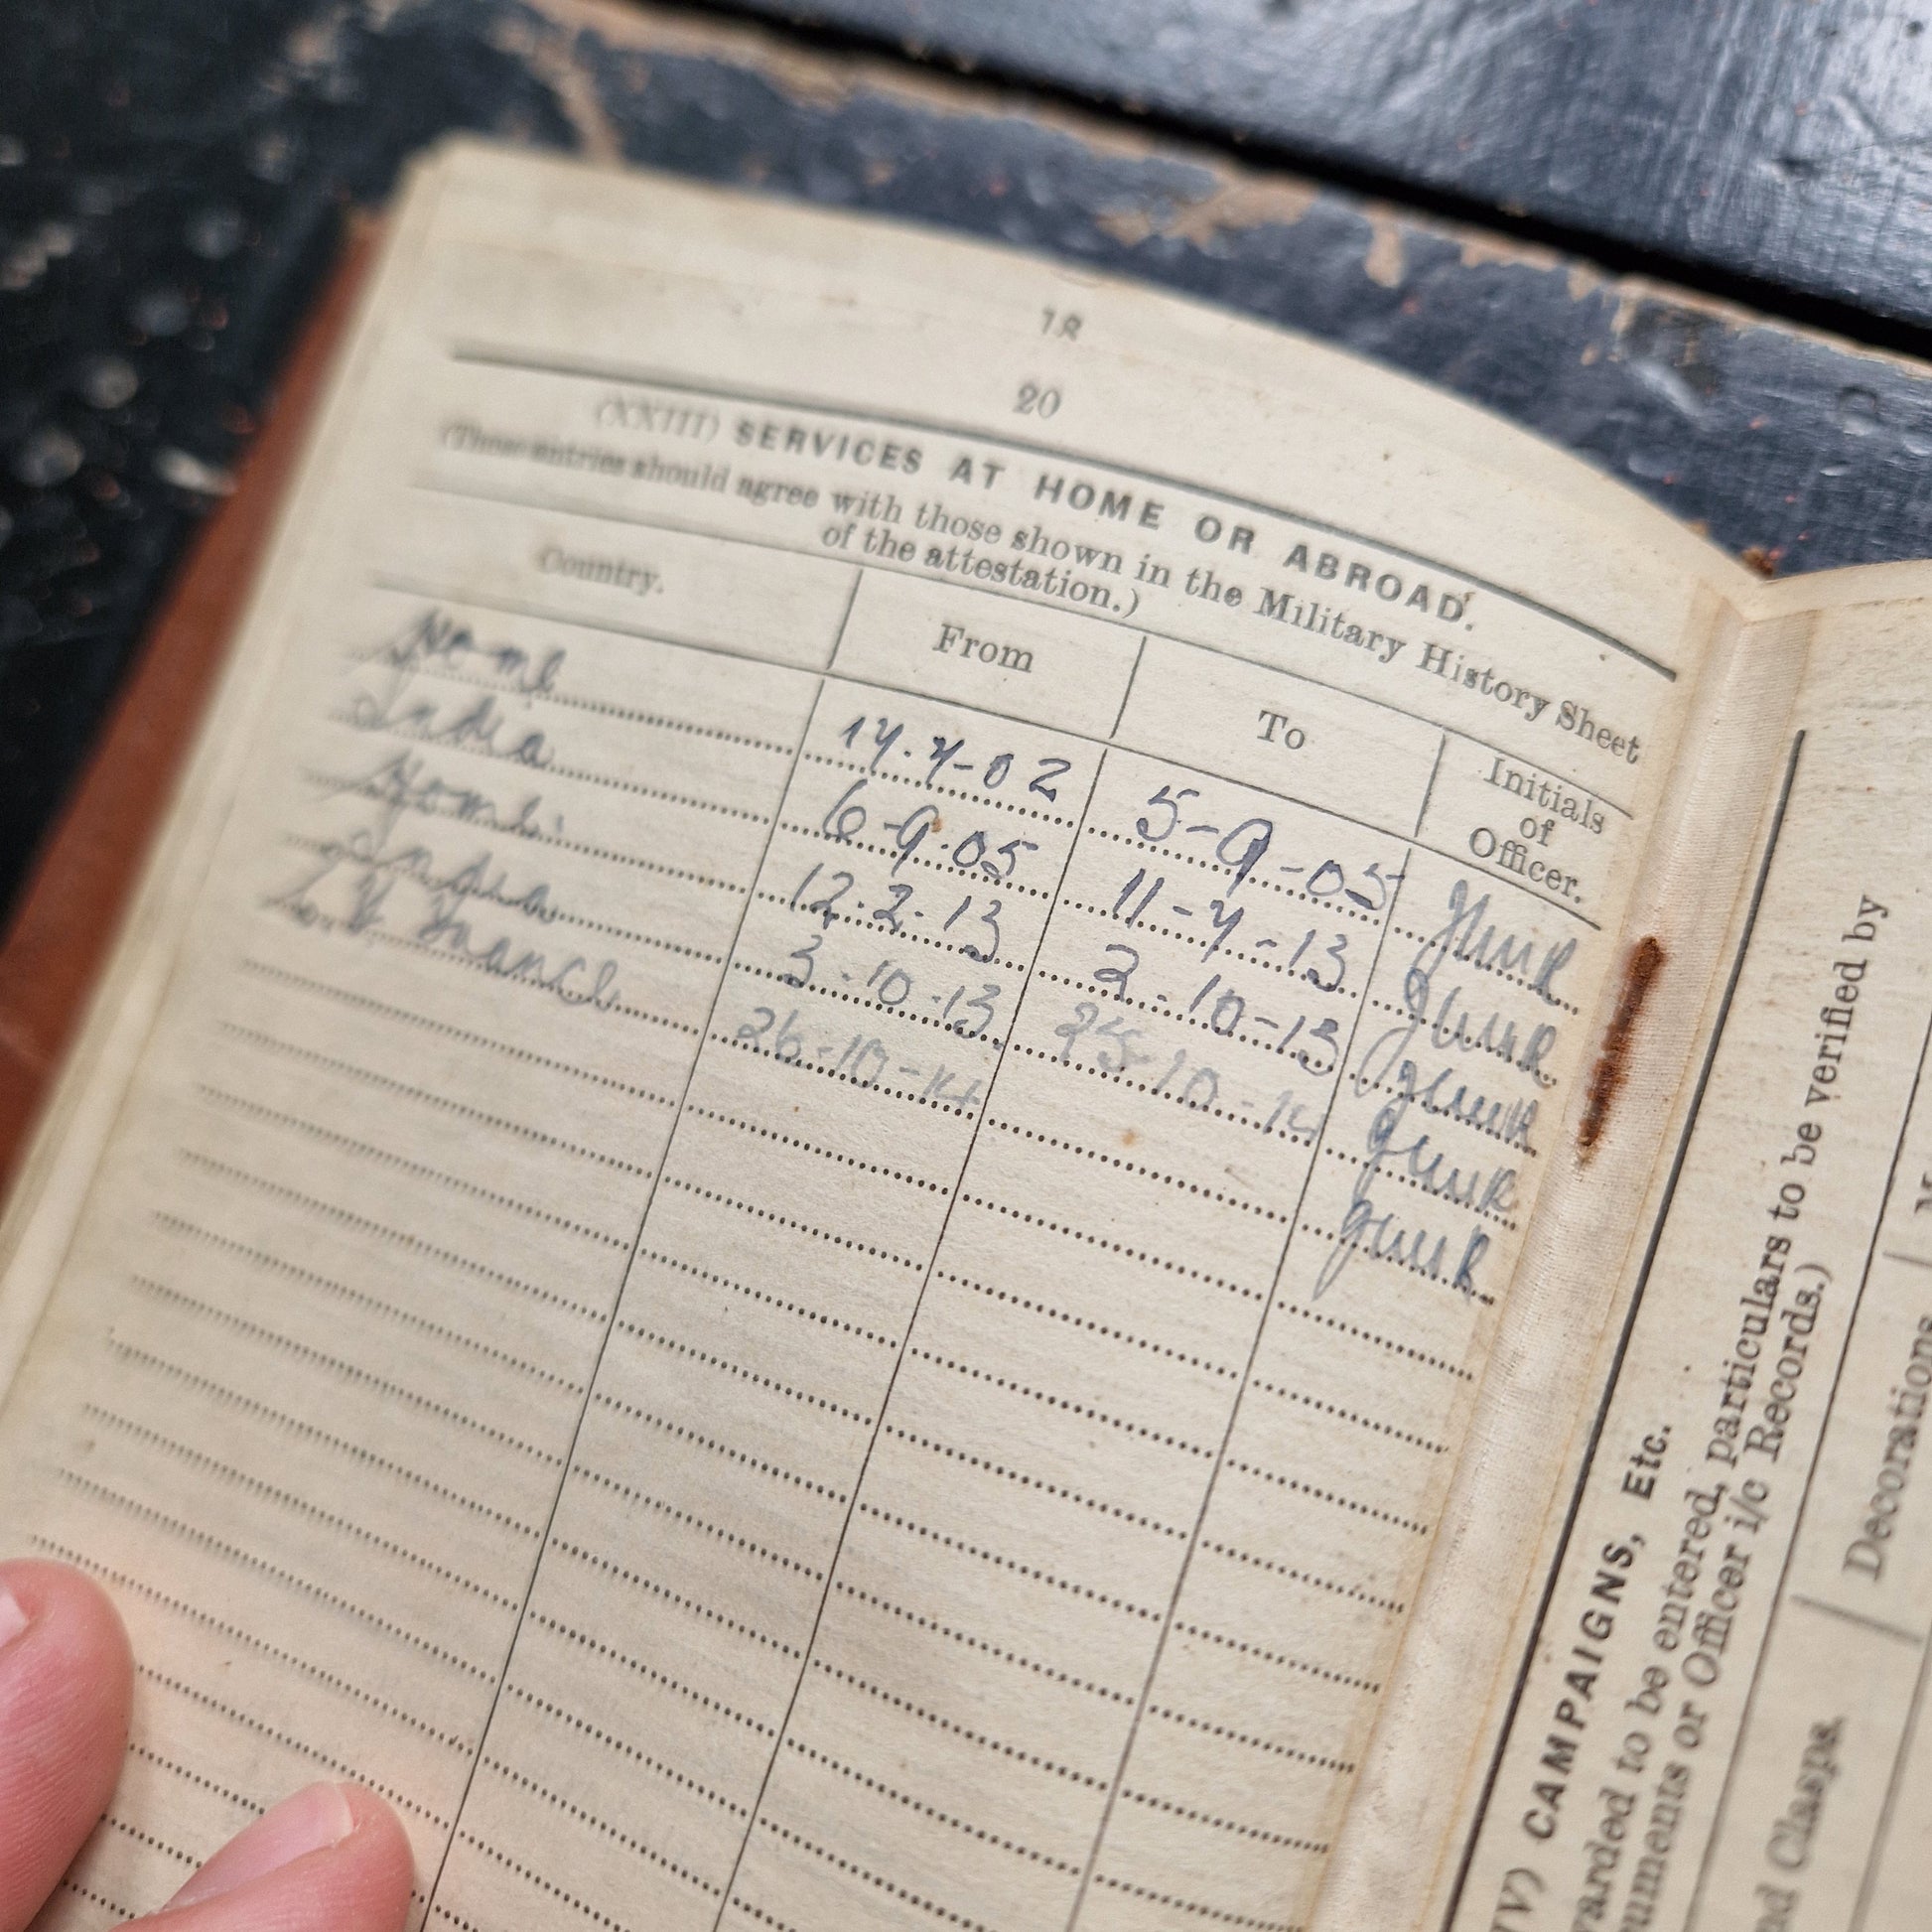 18
20
(XXIII) SERVICES AT HOME OR ABROAD.
(These entries should agree with those shown in the Military History Sheet
of the attestation.)
Country. From To Initials of Officer.
Home 14.4-02 5-9-05
India 6-9-05 11-4-13
Home 12.2.13 2-10-13
India 3-10-13 25-10-14
France 26-10-14
IV) CAMPAIGNS, Etc.
warded to be entered, particulars to be verified by
uments or Officer i/c Records.)
nd Clasps.
Decorations